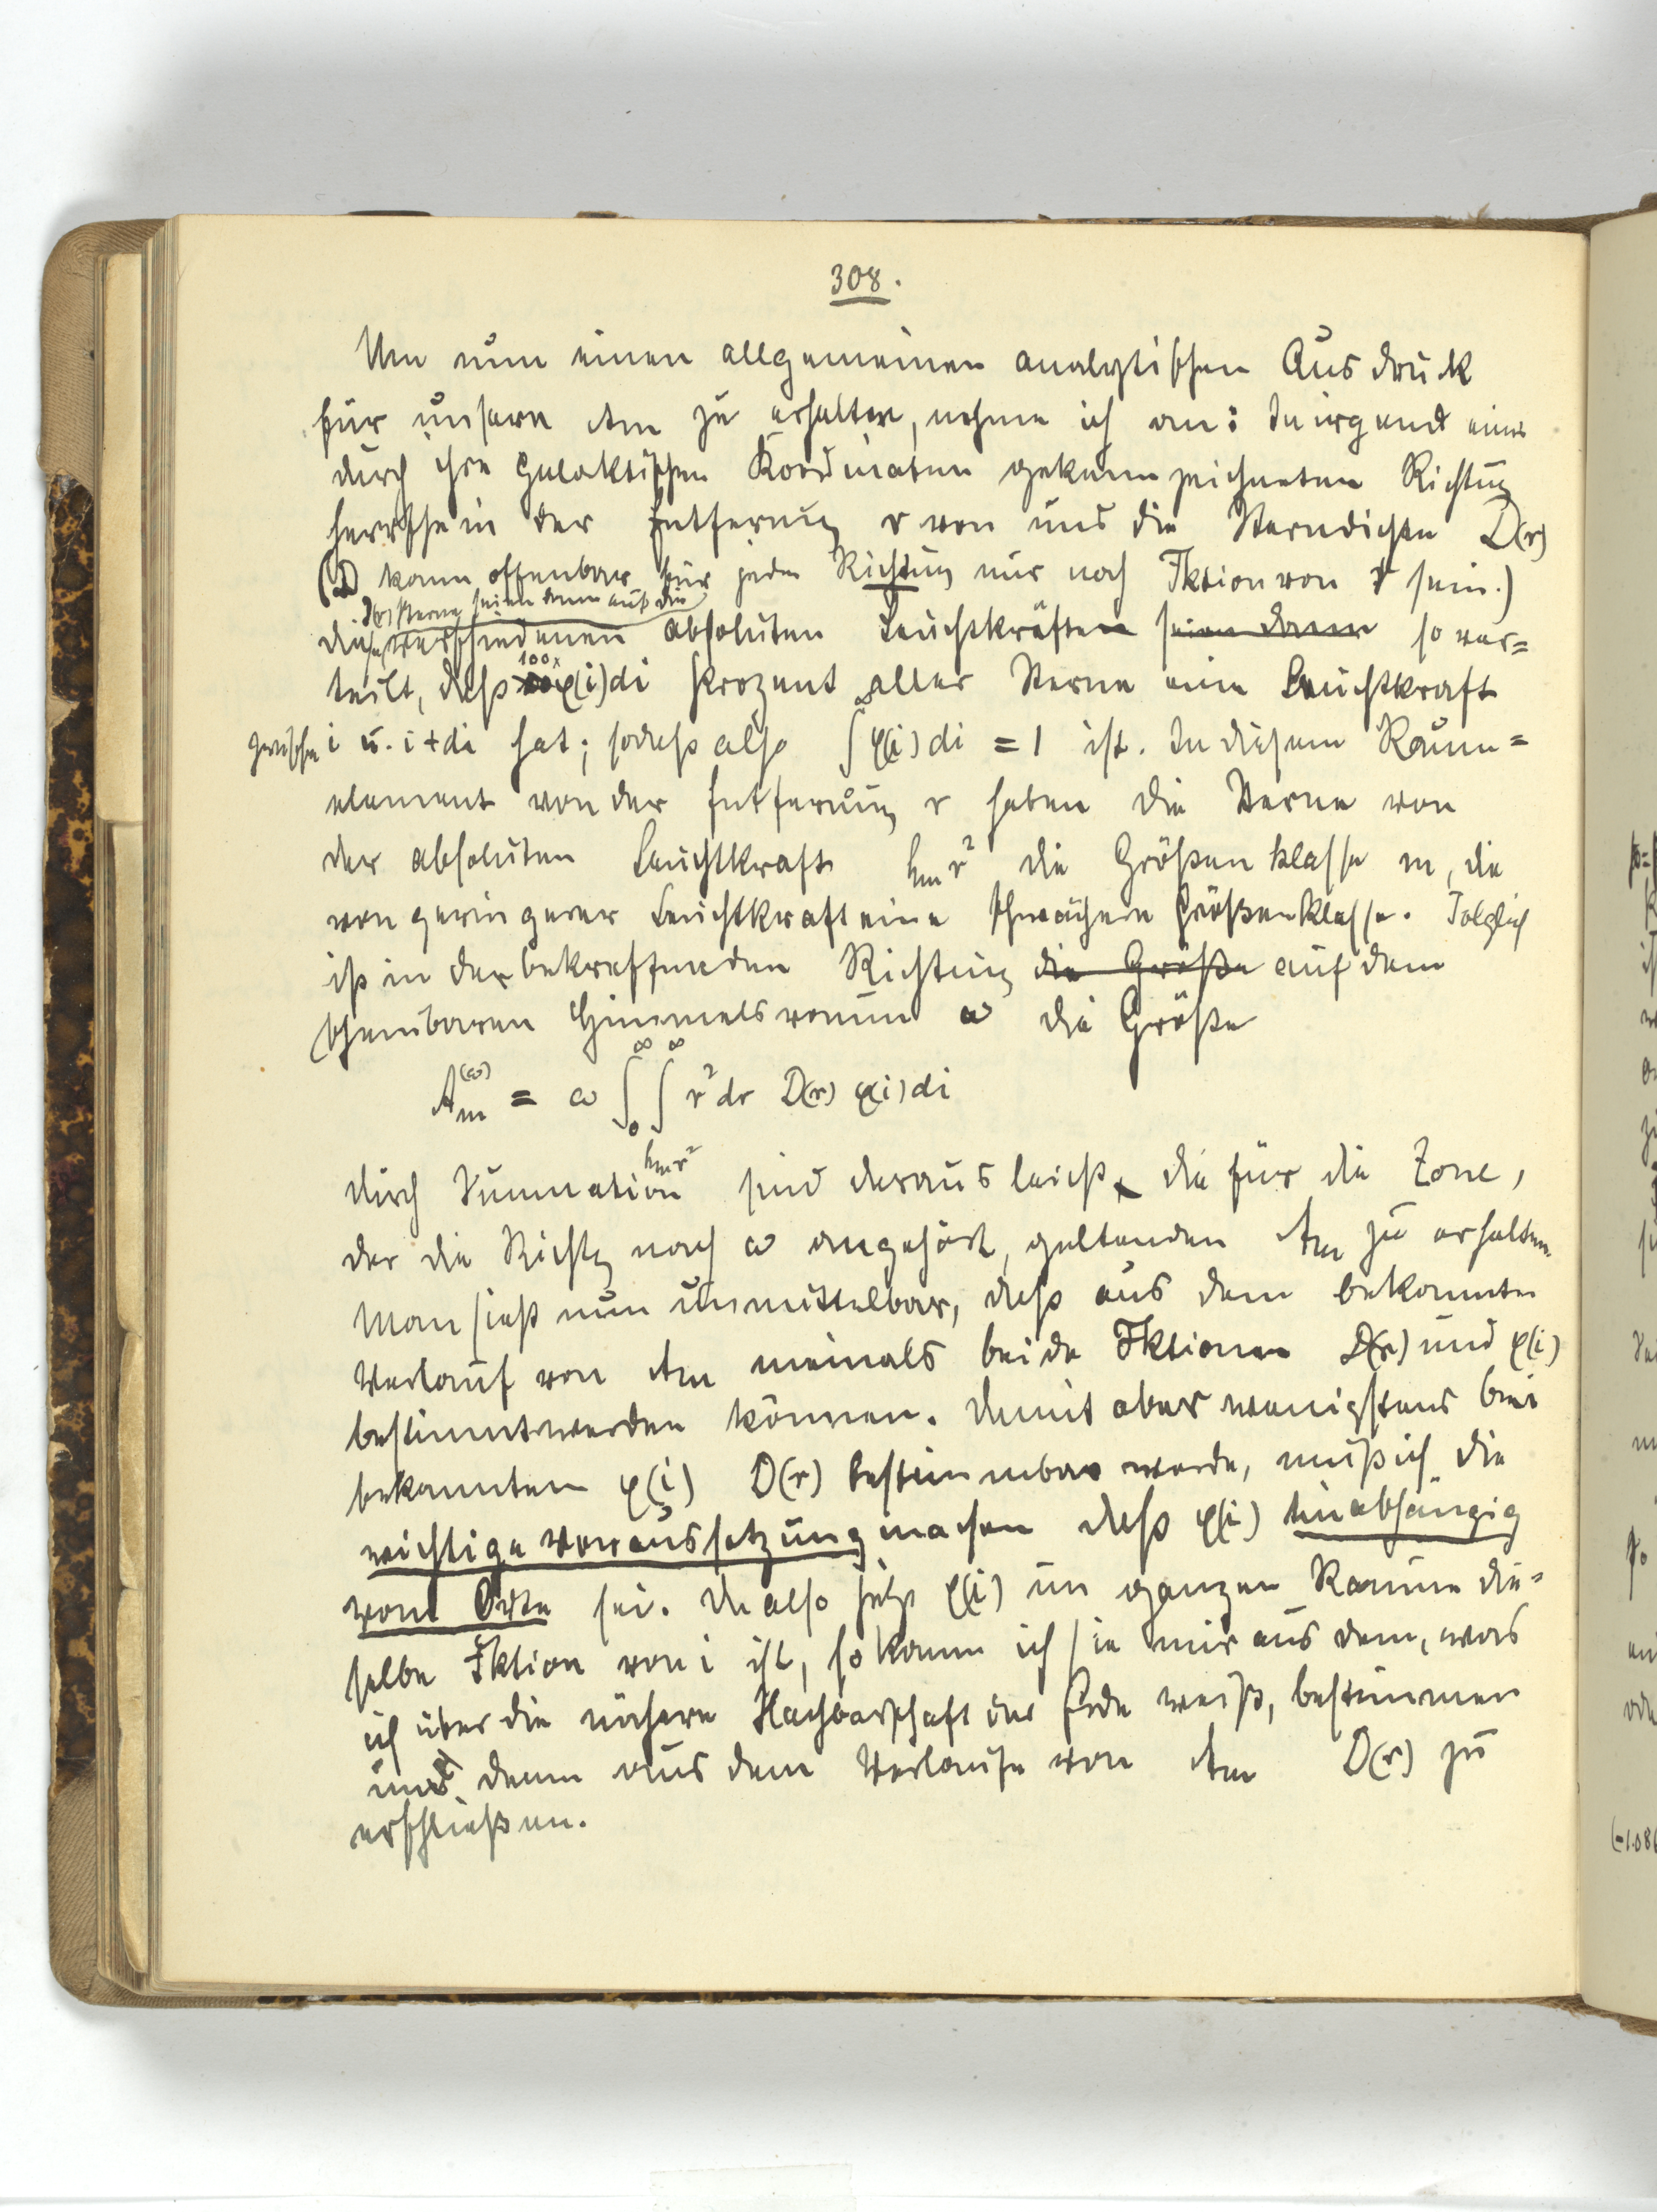 308.
Um nun einen allgemeinen analytischen Ausdruck
für unsere Am zu erhalten, nehme ich an: In irgend einer
durch ihre galaktischen Koordinaten gekennzeichneten Richtung
herrsche in der Entfernung r von uns die Sterndichte D(r)
(D kann offenbar für jede Richtung nur noch Fktion von r sein.)
D(r) Sterne seien dann auf die
diese verschiedenen absoluten Leuchtkräfte seien dann so ver=
100×
teilt, dass φ(i)di Prozent aller Sterne eine Leuchtkraft
zwischen i u. i+di hat; sodass also ∫ φ(i) di = 1 ist. In diesem Raum=
element von der Entfernung r haben die Sterne von
der absoluten Leuchtkraft hm r² die Größenklasse m, die
von geringerer Leuchtkraft eine schwächere Größenklasse. Folglich
ist in der betreffenden Richtung die Größe auf dem
scheinbaren Himmelsraum ω die Größe
Am(ω) = ω ∫₀^∞ ∫_{hm r²}^∞ r² dr D(r) φ(i) di
durch Summation sind daraus leicht die für die Zone,
der die Richtg nach ω angehört, geltenden Am zu erhalten.
Man sieht nun unmittelbar, dass aus dem bekannten
Verlauf von Am niemals beide Fktionen D(r) und φ(i)
bestimmt werden können. Damit aber wenigstens bei
bekanntem φ(i) D(r) bestimmbar werde, muß ich die
wichtige Voraussetzung machen dass φ(i) unabhängig
vom Orte sei. Da also jetzt φ(i) im ganzen Raume die=
selbe Fktion von i ist, so kann ich sie mir aus dem, was
ich über die nähere Nachbarschaft der Erde weiß, bestimmen
und dann aus dem Verlaufe von Am D(r) zu
erschließen.